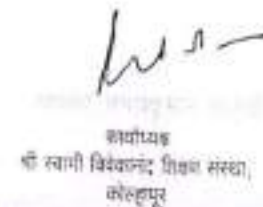 कार्याध्यक्ष
श्री स्वामी विवेकानंद शिक्षण संस्था,
कोल्हापूर